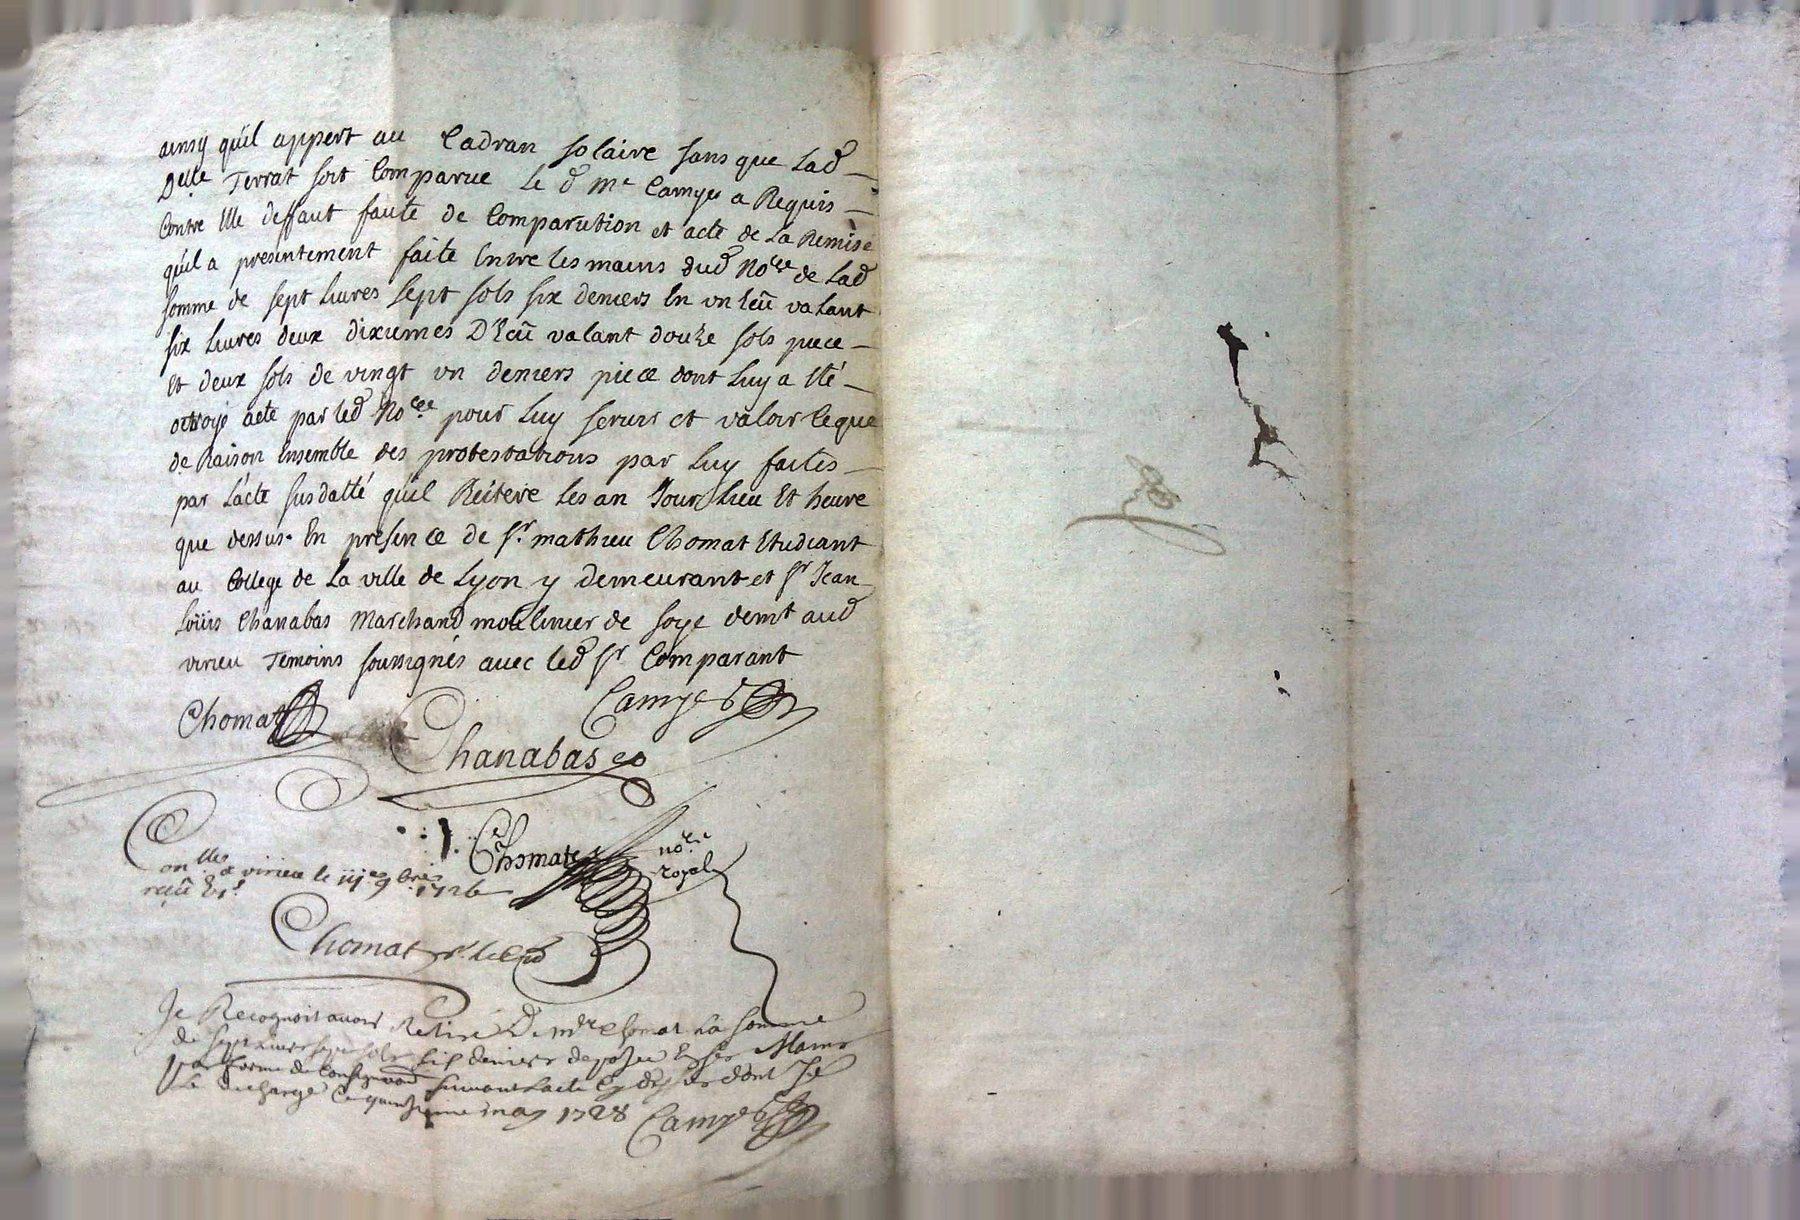 ainsy qu'il appert au Cadran solaire sans que Lad
Delle Terrat soit Comparue Le d Me Camyer a Requis
Contre Elle deffaut faute de Comparution et acte de La Remise
qu'il a presentement faite Entre les mains dud Nore de Lad
somme de sept Livres sept sols six deniers En un Ecu valant
six Livres deux dixiemes D'Ecu valant douze sols piece
Et deux sols de vingt un deniers piece dont Luy a Eté
octroyé acte par led Nore pour Luy servir et valoir Ce que
de Raison Ensemble des protestations par Luy faites
par L'acte susdatté qu'il Reitere Les an Jour Lieu Et heure
que dessus. En presence de Sr. mathieu Chomat Etudiant
au College de La ville de Lyon y demeurant et Sr Jean
Loüis Chanabas Marchand moulinier de soye demt aud
virieu Temoins soussignés avec led Sr Comparant
Chomat
Camyer
Chanabas
Chomat
nore
royal
Conllé a virieu le iije 9bre 1726
reçu
Chomat
Je Recognoit avoir Retiré De mtre Chomat La somme
de sept Livres sept sols six deniers deposée En ses Mains
par forme de Consignaon suivant L'acte Cy dessus dont Je
Le decharge Ce quinzieme may 1728
Camyer